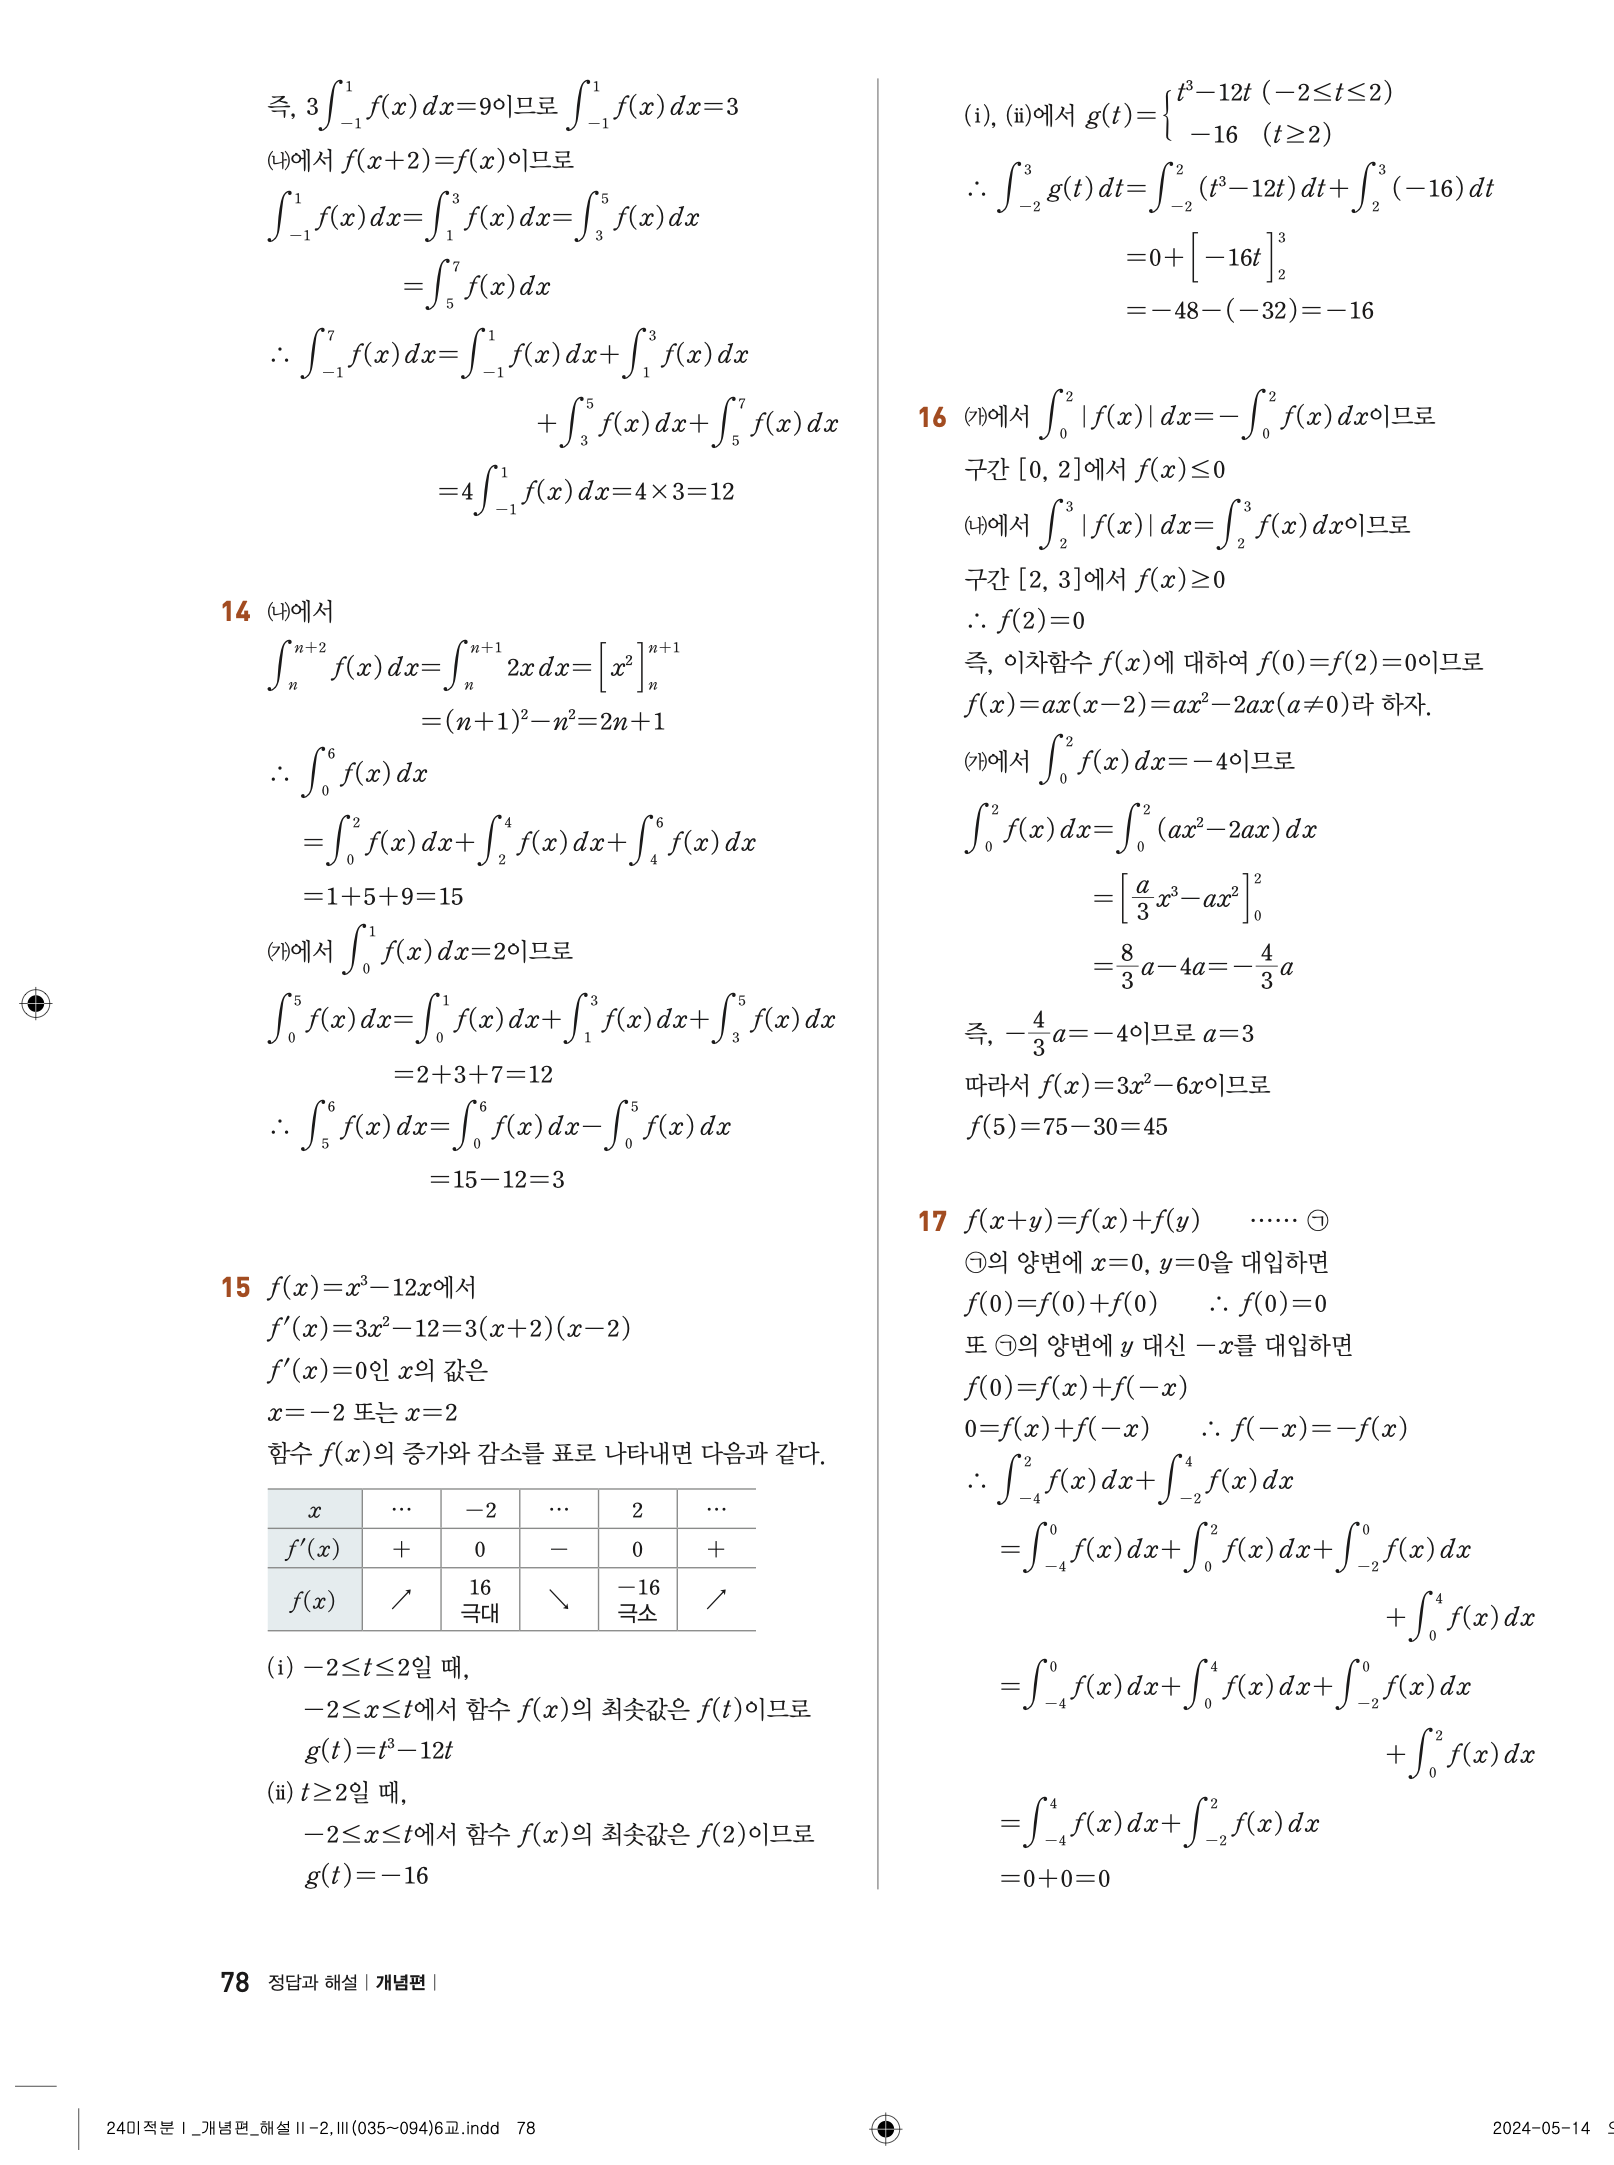 즉, 3∫_{-1}^{1} f(x)dx=9이므로 ∫_{-1}^{1} f(x)dx=3
㈏에서 f(x+2)=f(x)이므로
∫_{-1}^{1} f(x)dx=∫_{1}^{3} f(x)dx=∫_{3}^{5} f(x)dx
=∫_{5}^{7} f(x)dx
∴ ∫_{-1}^{7} f(x)dx=∫_{-1}^{1} f(x)dx+∫_{1}^{3} f(x)dx
+∫_{3}^{5} f(x)dx+∫_{5}^{7} f(x)dx
=4∫_{-1}^{1} f(x)dx=4×3=12
14 ㈏에서
∫_{n}^{n+2} f(x)dx=∫_{n}^{n+1} 2x dx=[x²]_{n}^{n+1}
=(n+1)²-n²=2n+1
∴ ∫_{0}^{6} f(x)dx
=∫_{0}^{2} f(x)dx+∫_{2}^{4} f(x)dx+∫_{4}^{6} f(x)dx
=1+5+9=15
㈎에서 ∫_{0}^{1} f(x)dx=2이므로
∫_{0}^{5} f(x)dx=∫_{0}^{1} f(x)dx+∫_{1}^{3} f(x)dx+∫_{3}^{5} f(x)dx
=2+3+7=12
∴ ∫_{5}^{6} f(x)dx=∫_{0}^{6} f(x)dx-∫_{0}^{5} f(x)dx
=15-12=3
15 f(x)=x³-12x에서
f′(x)=3x²-12=3(x+2)(x-2)
f′(x)=0인 x의 값은
x=-2 또는 x=2
함수 f(x)의 증가와 감소를 표로 나타내면 다음과 같다.
x ⋯ -2 ⋯ 2 ⋯
f′(x) + 0 - 0 +
f(x) ↗ 16 극대 ↘ -16 극소 ↗
(ⅰ) -2≤t≤2일 때,
-2≤x≤t에서 함수 f(x)의 최솟값은 f(t)이므로
g(t)=t³-12t
(ⅱ) t≥2일 때,
-2≤x≤t에서 함수 f(x)의 최솟값은 f(2)이므로
g(t)=-16
(ⅰ), (ⅱ)에서 g(t)={ t³-12t (-2≤t≤2)
-16 (t≥2)
∴ ∫_{-2}^{3} g(t)dt=∫_{-2}^{2} (t³-12t)dt+∫_{2}^{3} (-16)dt
=0+[-16t]_{2}^{3}
=-48-(-32)=-16
16 ㈎에서 ∫_{0}^{2} |f(x)|dx=-∫_{0}^{2} f(x)dx이므로
구간 [0, 2]에서 f(x)≤0
㈏에서 ∫_{2}^{3} |f(x)|dx=∫_{2}^{3} f(x)dx이므로
구간 [2, 3]에서 f(x)≥0
∴ f(2)=0
즉, 이차함수 f(x)에 대하여 f(0)=f(2)=0이므로
f(x)=ax(x-2)=ax²-2ax(a≠0)라 하자.
㈎에서 ∫_{0}^{2} f(x)dx=-4이므로
∫_{0}^{2} f(x)dx=∫_{0}^{2} (ax²-2ax)dx
=[a/3 x³-ax²]_{0}^{2}
=8/3 a-4a=-4/3 a
즉, -4/3 a=-4이므로 a=3
따라서 f(x)=3x²-6x이므로
f(5)=75-30=45
17 f(x+y)=f(x)+f(y) ⋯⋯ ㉠
㉠의 양변에 x=0, y=0을 대입하면
f(0)=f(0)+f(0) ∴ f(0)=0
또 ㉠의 양변에 y 대신 -x를 대입하면
f(0)=f(x)+f(-x)
0=f(x)+f(-x) ∴ f(-x)=-f(x)
∴ ∫_{-4}^{2} f(x)dx+∫_{-2}^{4} f(x)dx
=∫_{-4}^{0} f(x)dx+∫_{0}^{2} f(x)dx+∫_{-2}^{0} f(x)dx
+∫_{0}^{4} f(x)dx
=∫_{-4}^{0} f(x)dx+∫_{0}^{4} f(x)dx+∫_{-2}^{0} f(x)dx
+∫_{0}^{2} f(x)dx
=∫_{-4}^{4} f(x)dx+∫_{-2}^{2} f(x)dx
=0+0=0
78 정답과 해설 | 개념편 |
24미적분Ⅰ_개념편_해설Ⅱ-2,Ⅲ(035~094)6교.indd 78
2024-05-14